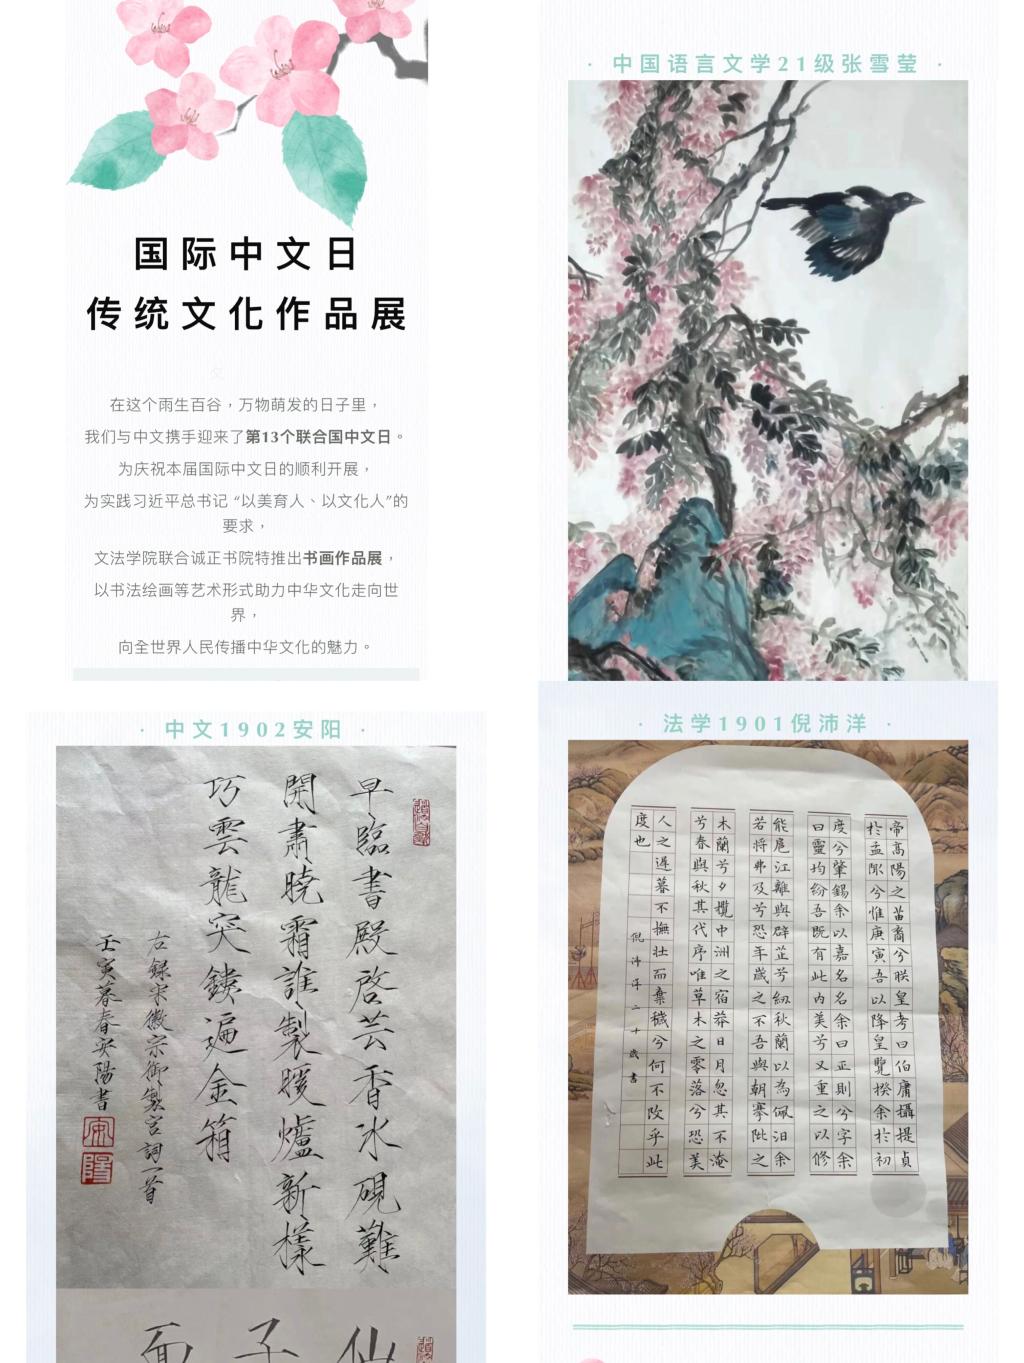 国际中文日
传统文化作品展
在这个雨生百谷，万物萌发的日子里，
我们与中文携手迎来了第13个联合国中文日。
为庆祝本届国际中文日的顺利开展，
为实践习近平总书记 “以美育人、以文化人”的
要求，
文法学院联合诚正书院特推出书画作品展，
以书法绘画等艺术形式助力中华文化走向世
界，
向全世界人民传播中华文化的魅力。
· 中国语言文学21级张雪莹 ·
· 中文1902安阳 ·
早臨書殿啓芸香水硯難
開肅曉霜誰製煖爐新樣
巧雲龍突鏤遍金箱
右録宋徽宗御製宮詞一首
壬寅暮春安陽書
安陽
仙
子
面
· 法学1901倪沛洋 ·
帝高陽之苗裔兮朕皇考曰伯庸攝提貞
於孟陬兮惟庚寅吾以降皇覽揆余於初
度兮肇錫余以嘉名名余曰正則兮字余
曰靈均紛吾既有此內美兮又重之以修
能扈江離與辟芷兮紉秋蘭以為佩汩余
若將弗及兮恐年歲之不吾與朝搴阰之
木蘭兮夕攬中洲之宿莽日月忽其不淹
兮春與秋其代序唯草木之零落兮恐美
人之遲暮不撫壯而棄穢兮何不改乎此
度也
倪沛洋二十歲書